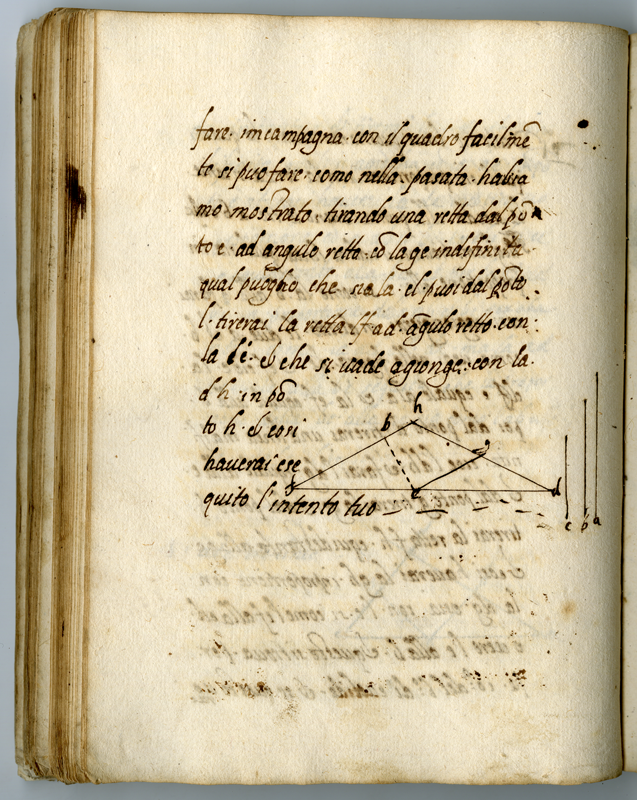 fare. in campagna. con il quadro facil mē
te si puo fare. como nella. pasata. habia
mo mostrato. tirando una retta dal pō
to e. ad angulo retto. cō la ge indifinita
qual pūoglio che sia la. el. puoi dal pōto
l. tirerai la retta lf ad. āgulo retto. con:
la de. & che si uade a gionge. con la.
d h. in pō
to h. & cosi
haverai ese
quito l'intento tuo
h
b
g
f
e
d
c b a